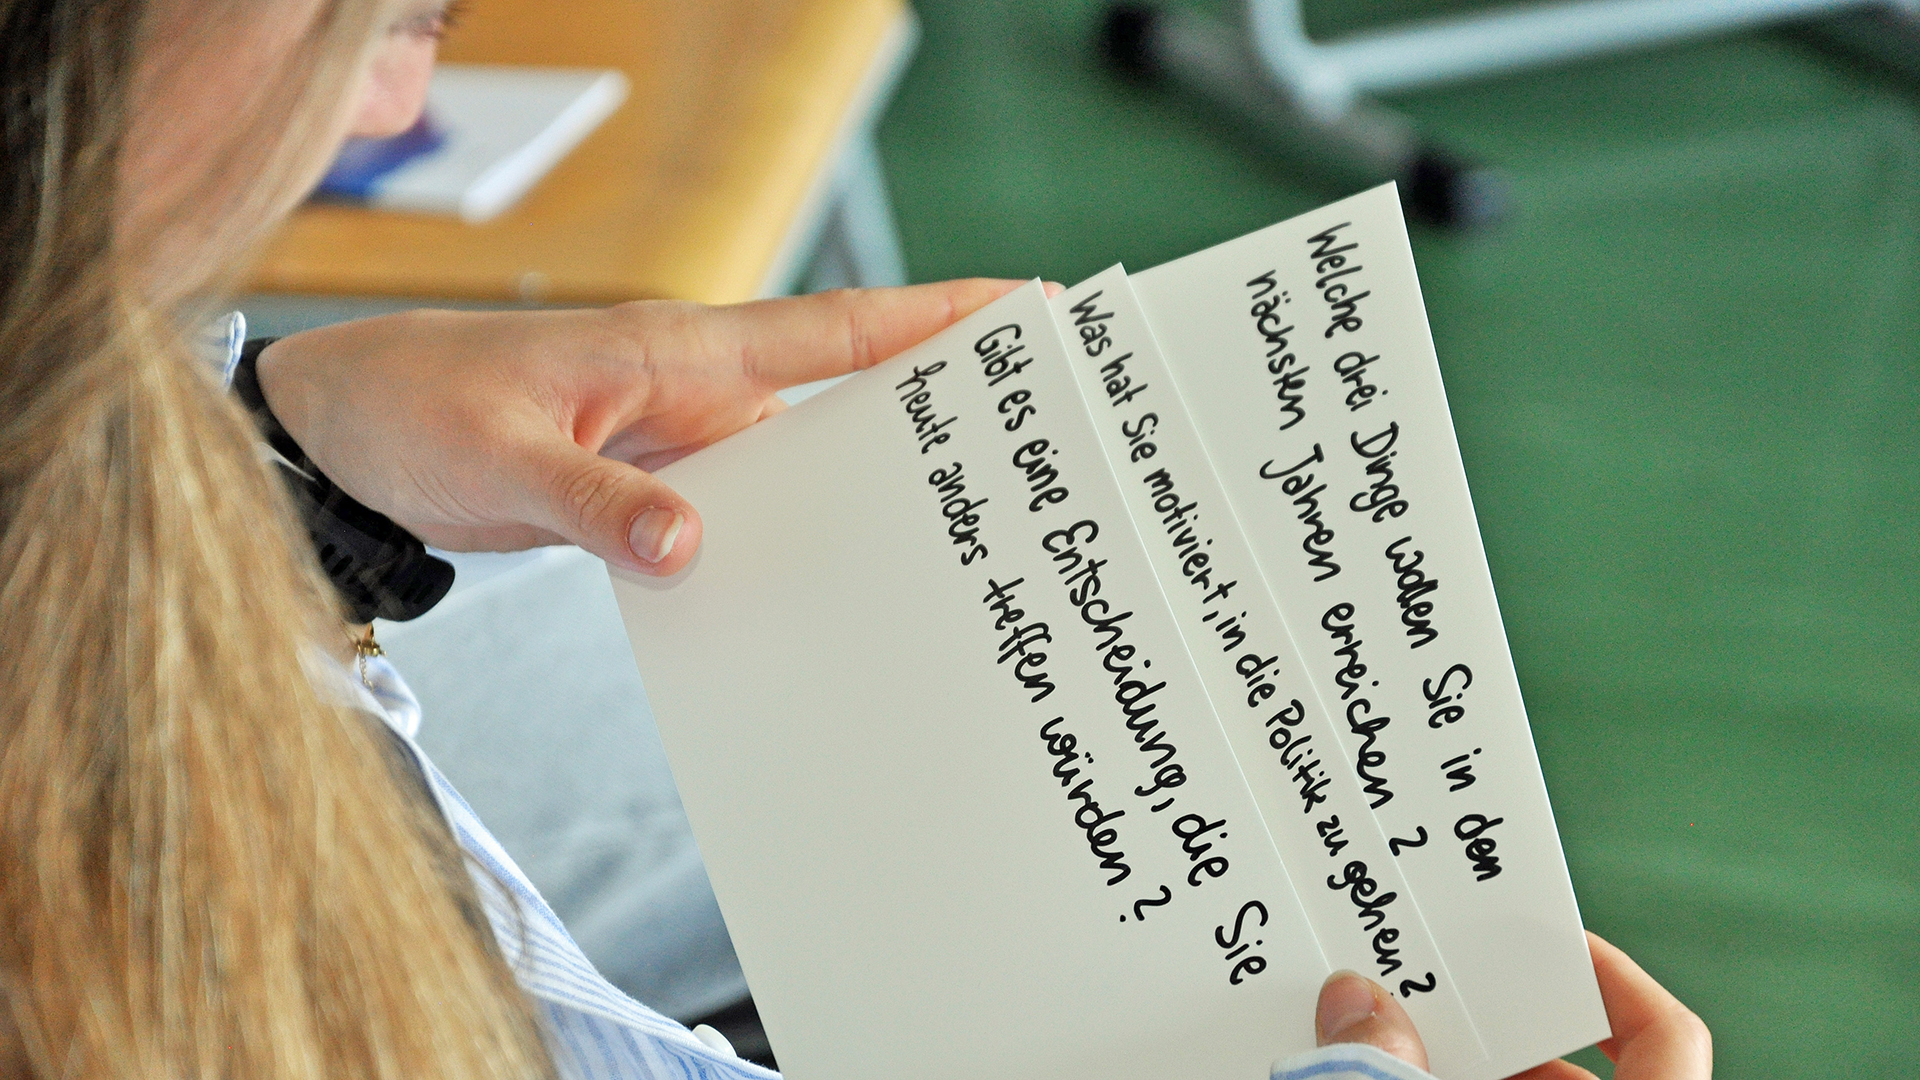 Welche drei Dinge wollen Sie in den
nächsten Jahren erreichen?
Was hat Sie motiviert, in die Politik zu gehen?
Gibt es eine Entscheidung, die Sie
heute anders treffen würden?